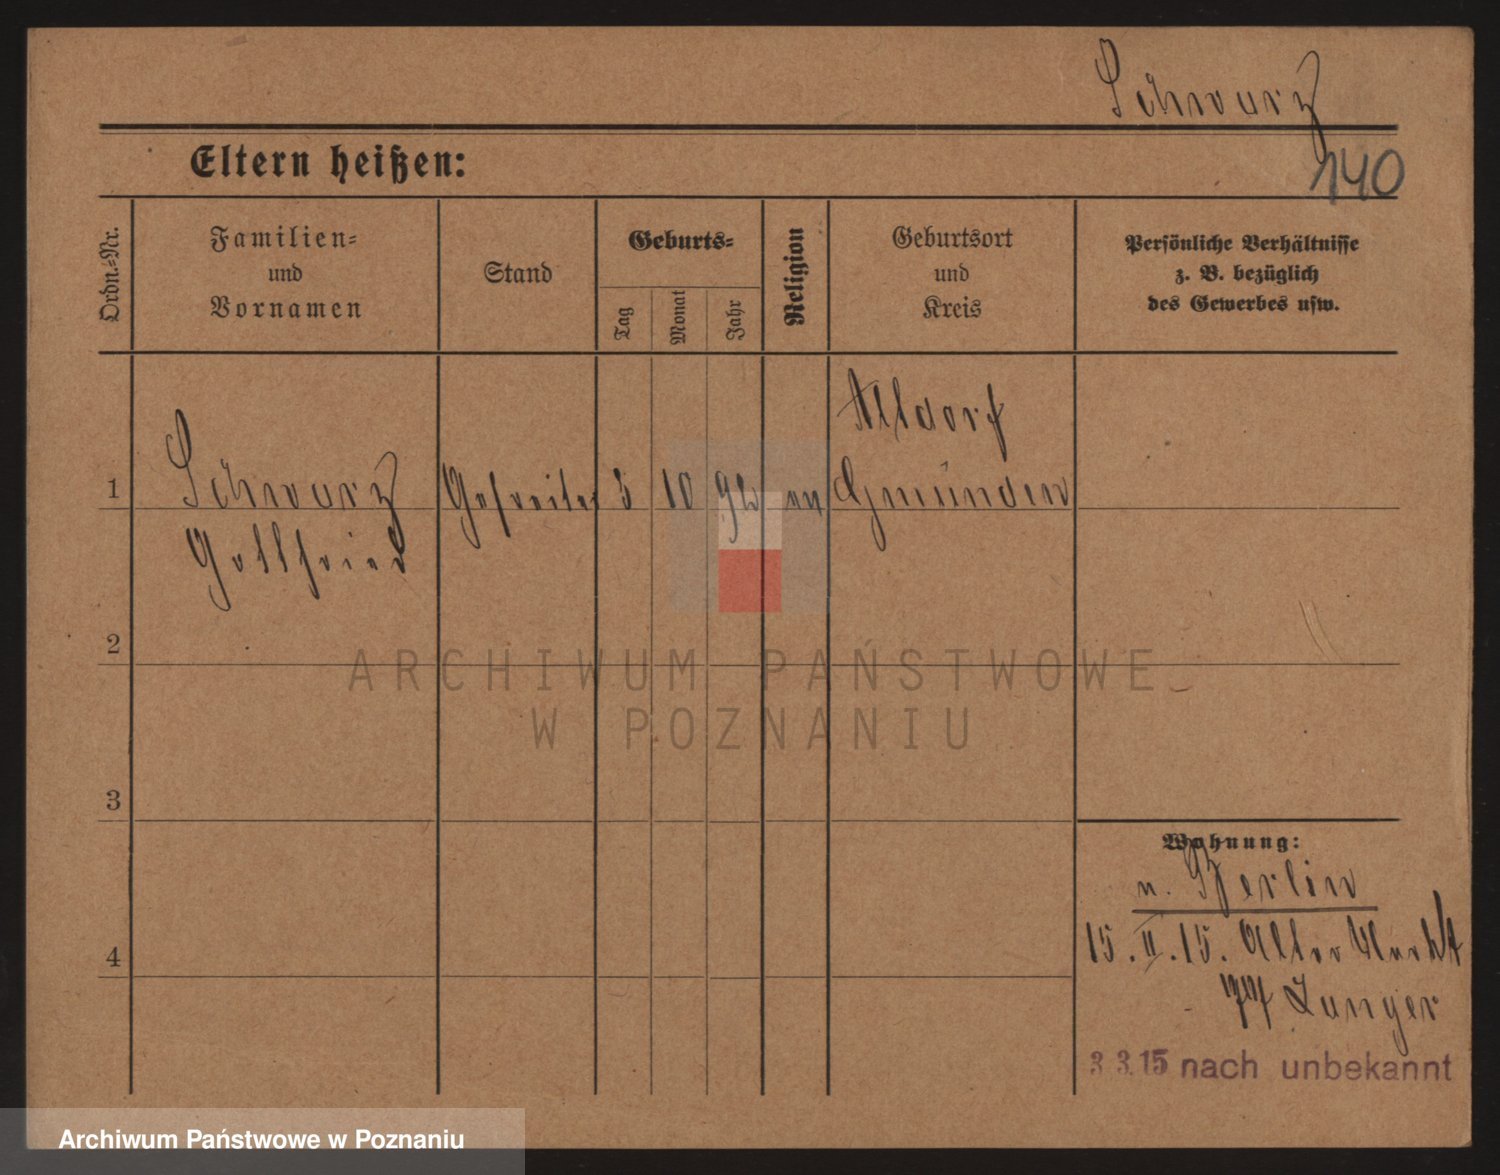 Schwarz
140
Eltern heißen:
Ordn.=Nr.
Familien=
und
Vornamen
Stand
Geburts=
Tag
Monat
Jahr
Religion
Geburtsort
und
Kreis
Persönliche Verhältnisse
z. B. bezüglich
des Gewerbes usw.
1
Schwarz
Gottfried
Gefreiter
5
10
92
Alldorf
Gmünden
2
3
4
ARCHIWUM PAŃSTWOWE
W POZNANIU
Wohnung:
n. Berlin
15. II. 15. Alter Markt
77 Langer
3.3.15 nach unbekannt
Archiwum Państwowe w Poznaniu